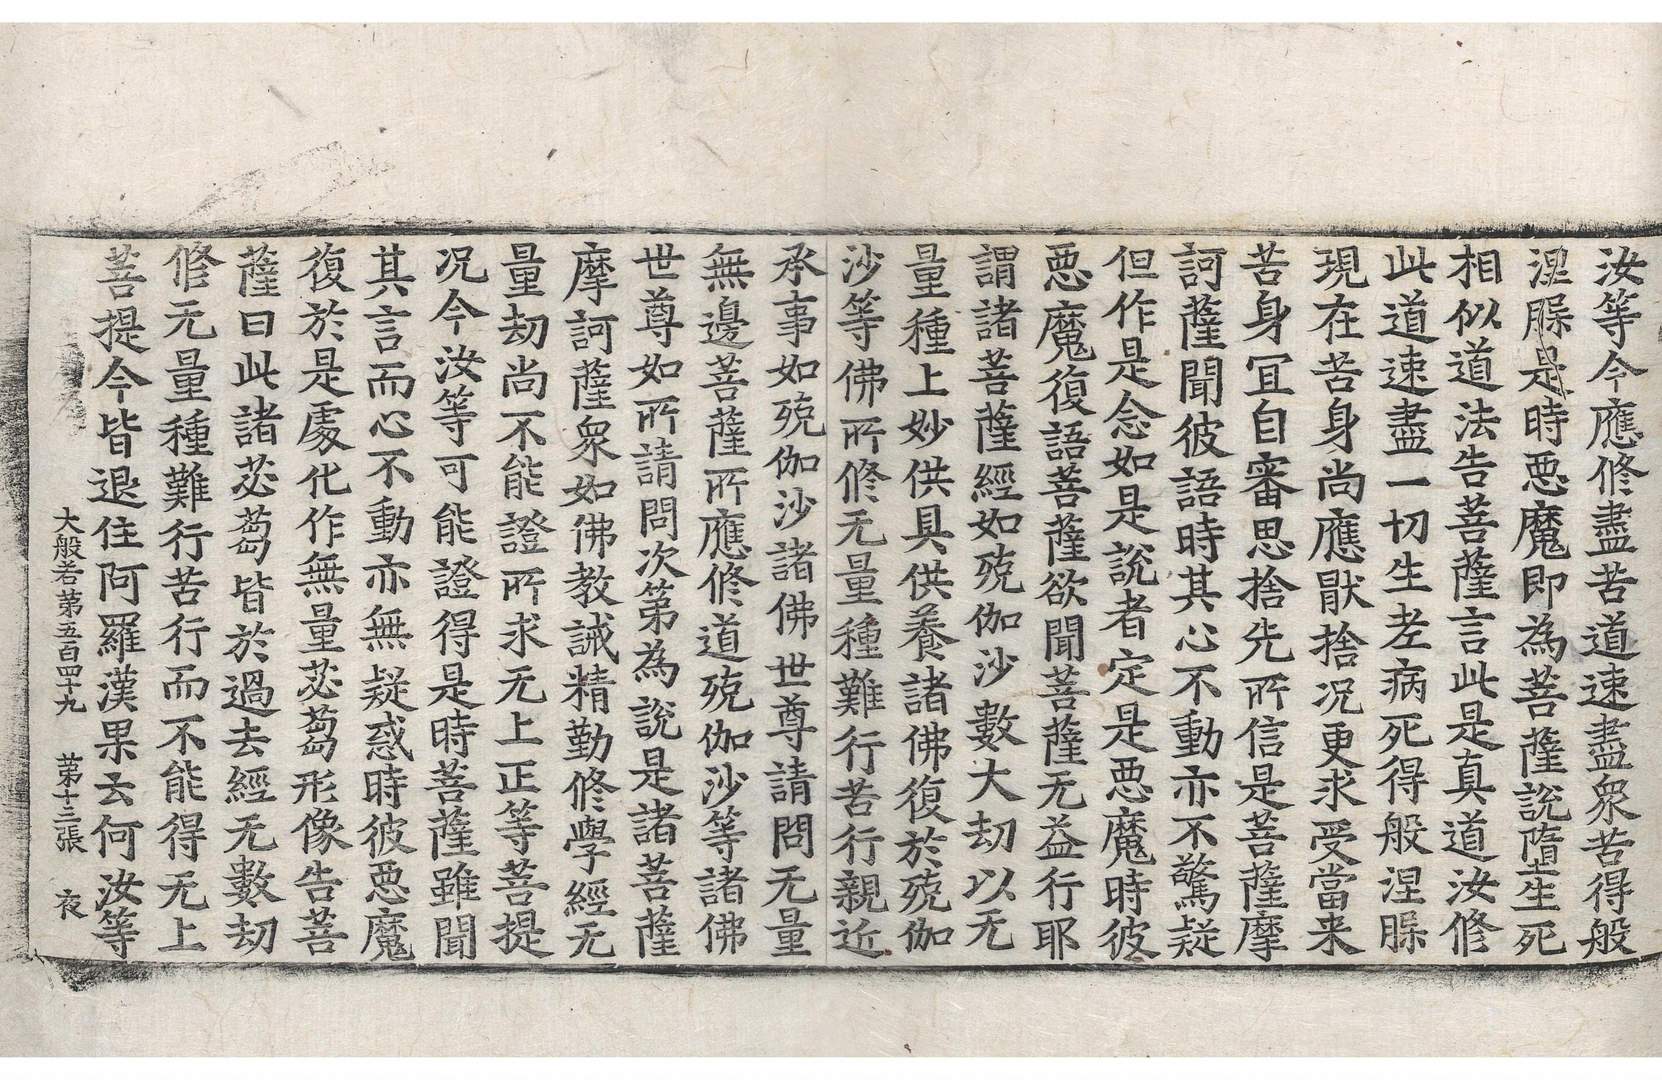 汝等今應修盡苦道速盡衆苦得般
涅䏶是時惡魔即為菩薩說墮生死
相似道法告菩薩言此是真道汝修
此道速盡一切生老病死得般涅䏶
現在苦身尚應猒捨况更求受當来
苦身冝自審思捨先所信是菩薩摩
訶薩聞彼語時其心不動亦不驚疑
但作是念如是說者定是惡魔時彼
惡魔復語菩薩欲聞菩薩无益行耶
謂諸菩薩經如殑伽沙數大劫以无
量種上妙供具供養諸佛復於殑伽
沙等佛所修无量種難行苦行親近
承事如殑伽沙諸佛世尊請問无量
無邊菩薩所應修道殑伽沙等諸佛
世尊如所請問次第為說是諸菩薩
摩訶薩衆如佛教誡精勤修學經无
量劫尚不能證所求无上正等菩提
况今汝等可能證得是時菩薩雖聞
其言而心不動亦無疑惑時彼惡魔
復於是處化作無量苾蒭形像告菩
薩曰此諸苾蒭皆於過去經无數劫
修无量種難行苦行而不能得无上
菩提今皆退住阿羅漢果云何汝等
大般若第五百四十九 第十三張 夜